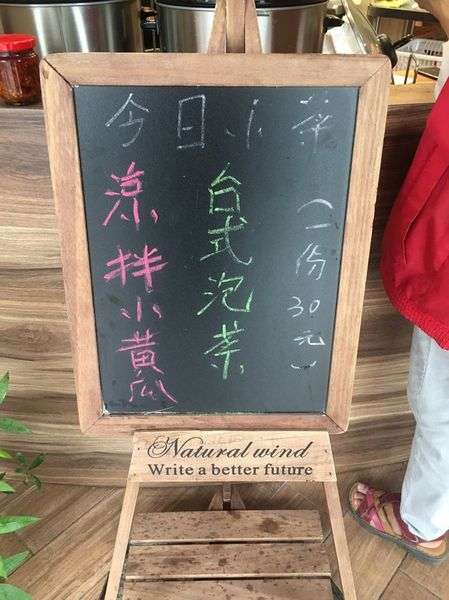 今日小菜
(一份30元)
台式泡菜
涼拌小黃瓜
Natural wind
Write a better future